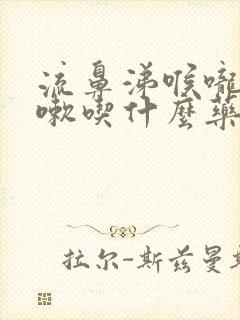 流鼻涕喉嚨
嗽喫什麼藥
拉尔-斯兹曼